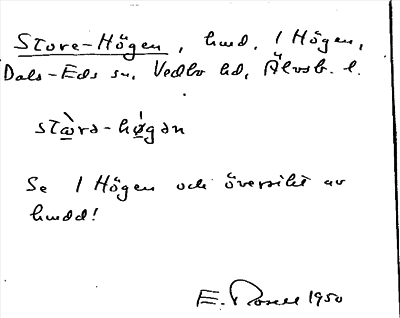 Store-Högen, hmd. 1 Högen,
Dals-Eds sn, Vedbo hd, Älvsb. l.
stɷ̀rə-hø̀gən
Se 1 Högen och översikt av
hmdd!
E. Rosell 1950